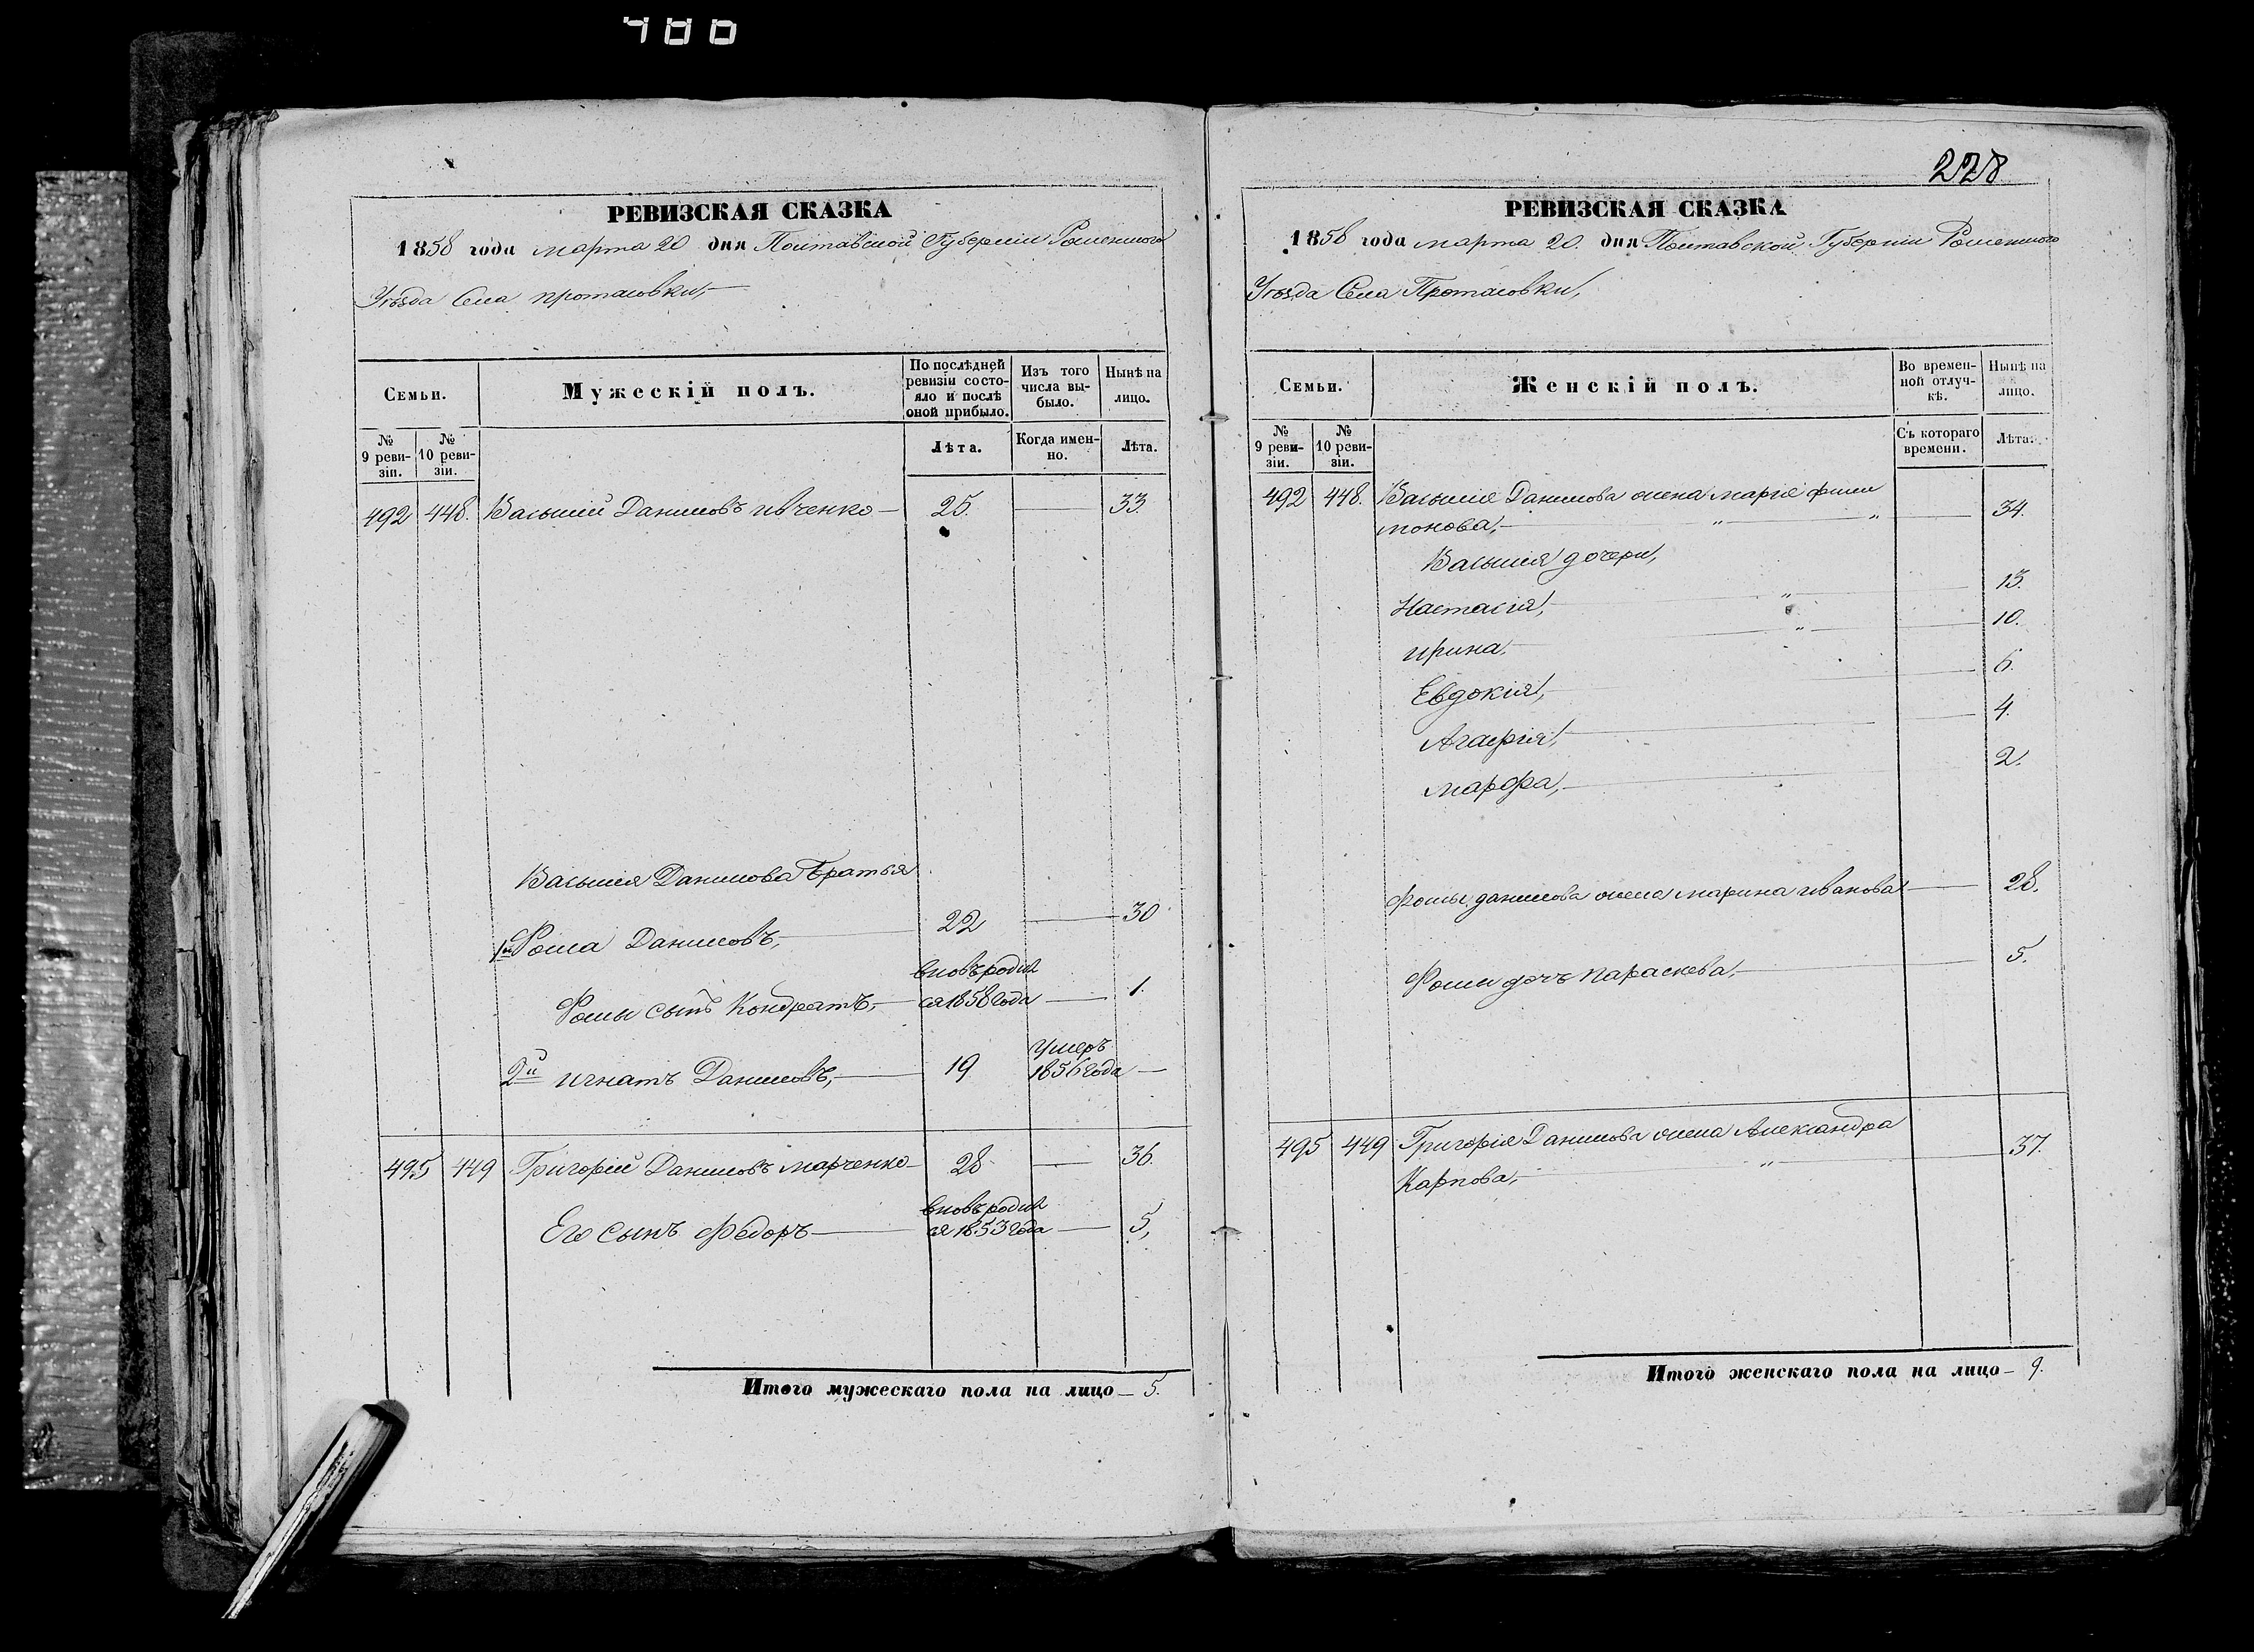 486
РЕВИЗСКАЯ СКАЗКА
1858 года марта 20 дня Полтавской Губерніи Роменскаго
Уѣзда Села протасовки,
Семьи.
Мужескій полъ.
По послѣдней ревизіи состояло и послѣ оной прибыло.
Изъ того числа выбыло.
Нынѣ на лицо.
№ 9 ревизіи.
№ 10 ревизіи.
Лѣта.
Когда именно.
Лѣта.
492 448. Василій Даниловъ ивченко 25. 33.
Василія Данилова братья
1й Фома Даниловъ, 22 30
Фомы сынъ Кондратъ, вновь родился 1858 года 1.
2й игнатъ Даниловъ, 19 умеръ 1856 года
495 449 Григорій Даниловъ марченко 28 36.
Его сынъ Федоръ вновь родился 1853 года 5,
Итого мужескаго пола на лицо 5.
228
РЕВИЗСКАЯ СКАЗКА
1858 года марта 20. дня Полтавской Губерніи Роменскаго
Уѣзда Села Протасовки,
Семьи.
Женскій полъ.
Во временной отлучкѣ.
Нынѣ на лицо.
№ 9 ревизіи.
№ 10 ревизіи.
Съ котораго времени.
Лѣта.
492 448. Василія Данилова жена марія фили
монова, 34.
Василія дочери,
Настасія, 13.
ирина, 10.
Евдокія, 6.
Агафія, 4.
марфа, 2.
Фомы данилова жена марина иванова 28.
Фомы дочь параскева, 5.
495 449 Григорія Данилова жена Александра
Карпова, 37.
Итого женскаго пола на лицо 9.